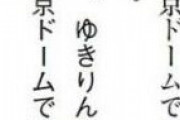 京ドームで
ゆきりん
京ドームで